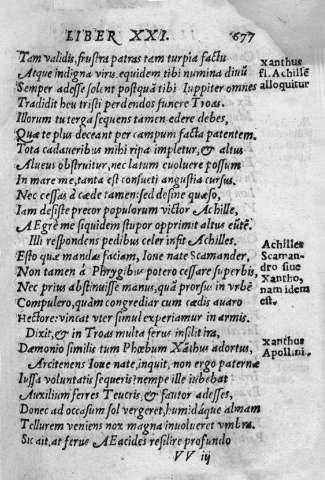 LIBER XXI. 677
Tam validis, frustra patras tam turpia factu
Atque indigna viro. equidem tibi numina diuû
Semper adesse solent postquã tibi Iuppiter omnes
Tradidit heu tristi perdendos funere Troas.
Illorum tu terga sequens tamen edere debes,
Quæ te plus deceant per campum facta patentem.
Tota cadaueribus mihi ripa impletur, & altus
Alueus obstruitur, nec latum euoluere possum
In mare me, tanta est consueti angustia cursus.
Nec cessas à cæde tamen: sed desine quæso,
Iam desiste precor populorum victor Achille,
AEgrè me siquidem stupor opprimit altus eũtẽ.
Illi respondens pedibus celer infit Achilles.
Esto quæ mandas faciam, Ioue nate Scamander,
Non tamen à Phrygibus potero cessare superbis,
Nec prius abstinuisse manus, quàm prorsus in vrbẽ
Compulero, quàm congrediar cum cædis auaro
Hectore: vincat vter simul experiamur in armis.
Dixit, & in Troas multa ferus insilit ira,
Dæmonio similis tum Phœbum Xãthus adortus,
Arcitenens Ioue nate, inquit, non ergo paternæ
Iussa voluntatis sequeris? nempe ille iubebat
Auxilium ferres Teucris, & fautor adesses,
Donec ad occasum sol vergeret, humidáque almam
Tellurem veniens nox magna inuolueret vmbra.
Sic ait, at ferus AEacides resilire profundo
VV iij
Xanthus
fl. Achillẽ
alloquitur
Achilles
Scaman-
dro siue
Xantho,
nam idem
est.
Xanthus
Apollini.